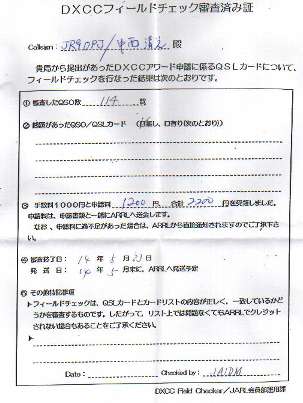 DXCCフィールドチェック審査済み証
Callsign: JR9OPJ/ 殿
貴局から提出があったDXCCアワード申請に係るQSLカードについて、
フィールドチェックを行なった結果は次のとおりです。
① 審査したQSO数 114 枚
② 疑義があったQSO/QSLカード (□無し、□有り(次のとおり))
③ 手数料1000円と申請料 1200 円、合計 2200 円を受領しました。
申請料は、申請書類と一緒にARRLへ送金します。
なお、申請料に過不足があった場合は、ARRLから直接通知されますのでご了承下さ
い。
④ 審査終了日: 14 年 5 月 21 日
発 送 日: 14 年 5 月末に、ARRLへ発送予定
⑤ その他特記事項
フィールドチェックは、QSLカードとカードリストの内容が正しく、一致しているかど
うかを審査するものです。したがって、リスト上では問題なくてもARRLでクレジット
されない場合もあることをご了承ください。
Date: Checked by:
DXCC Field Checker/JARL会員部業務課